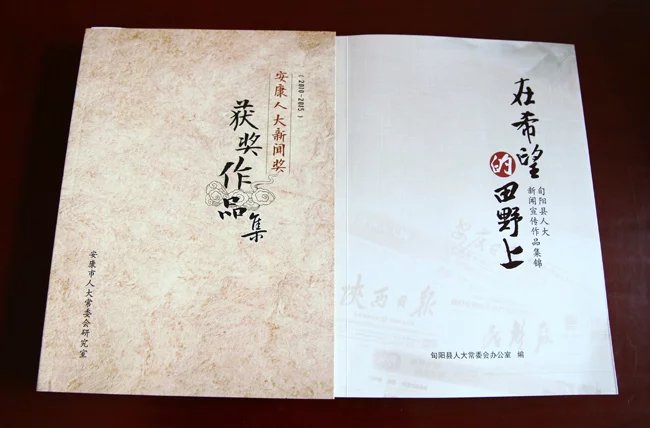 （2010-2015）
安康人大新闻奖
获奖作品集
安康市人大常委会研究室
在希望的田野上
旬阳县人大
新闻宣传作品集锦
陕西日报
旬阳县人大常委会办公室 编